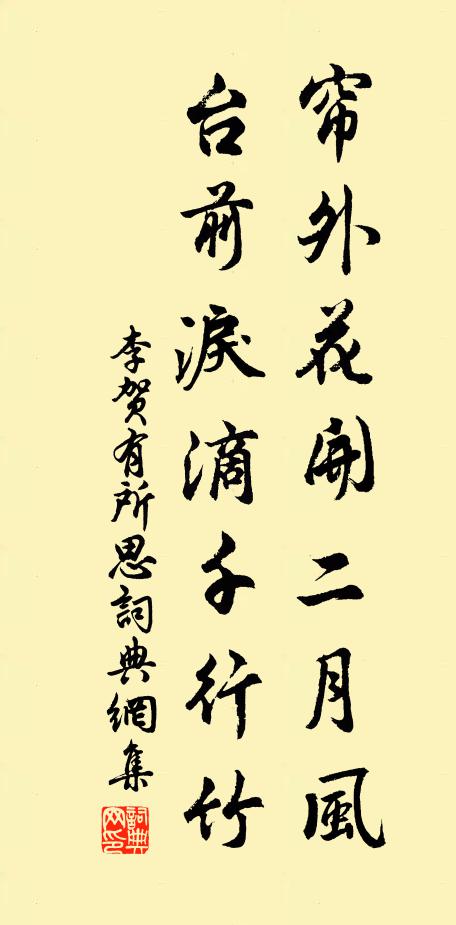 帘外花開二月風
台前淚滴千行竹
李贺有所思詞典網集
詞典网印